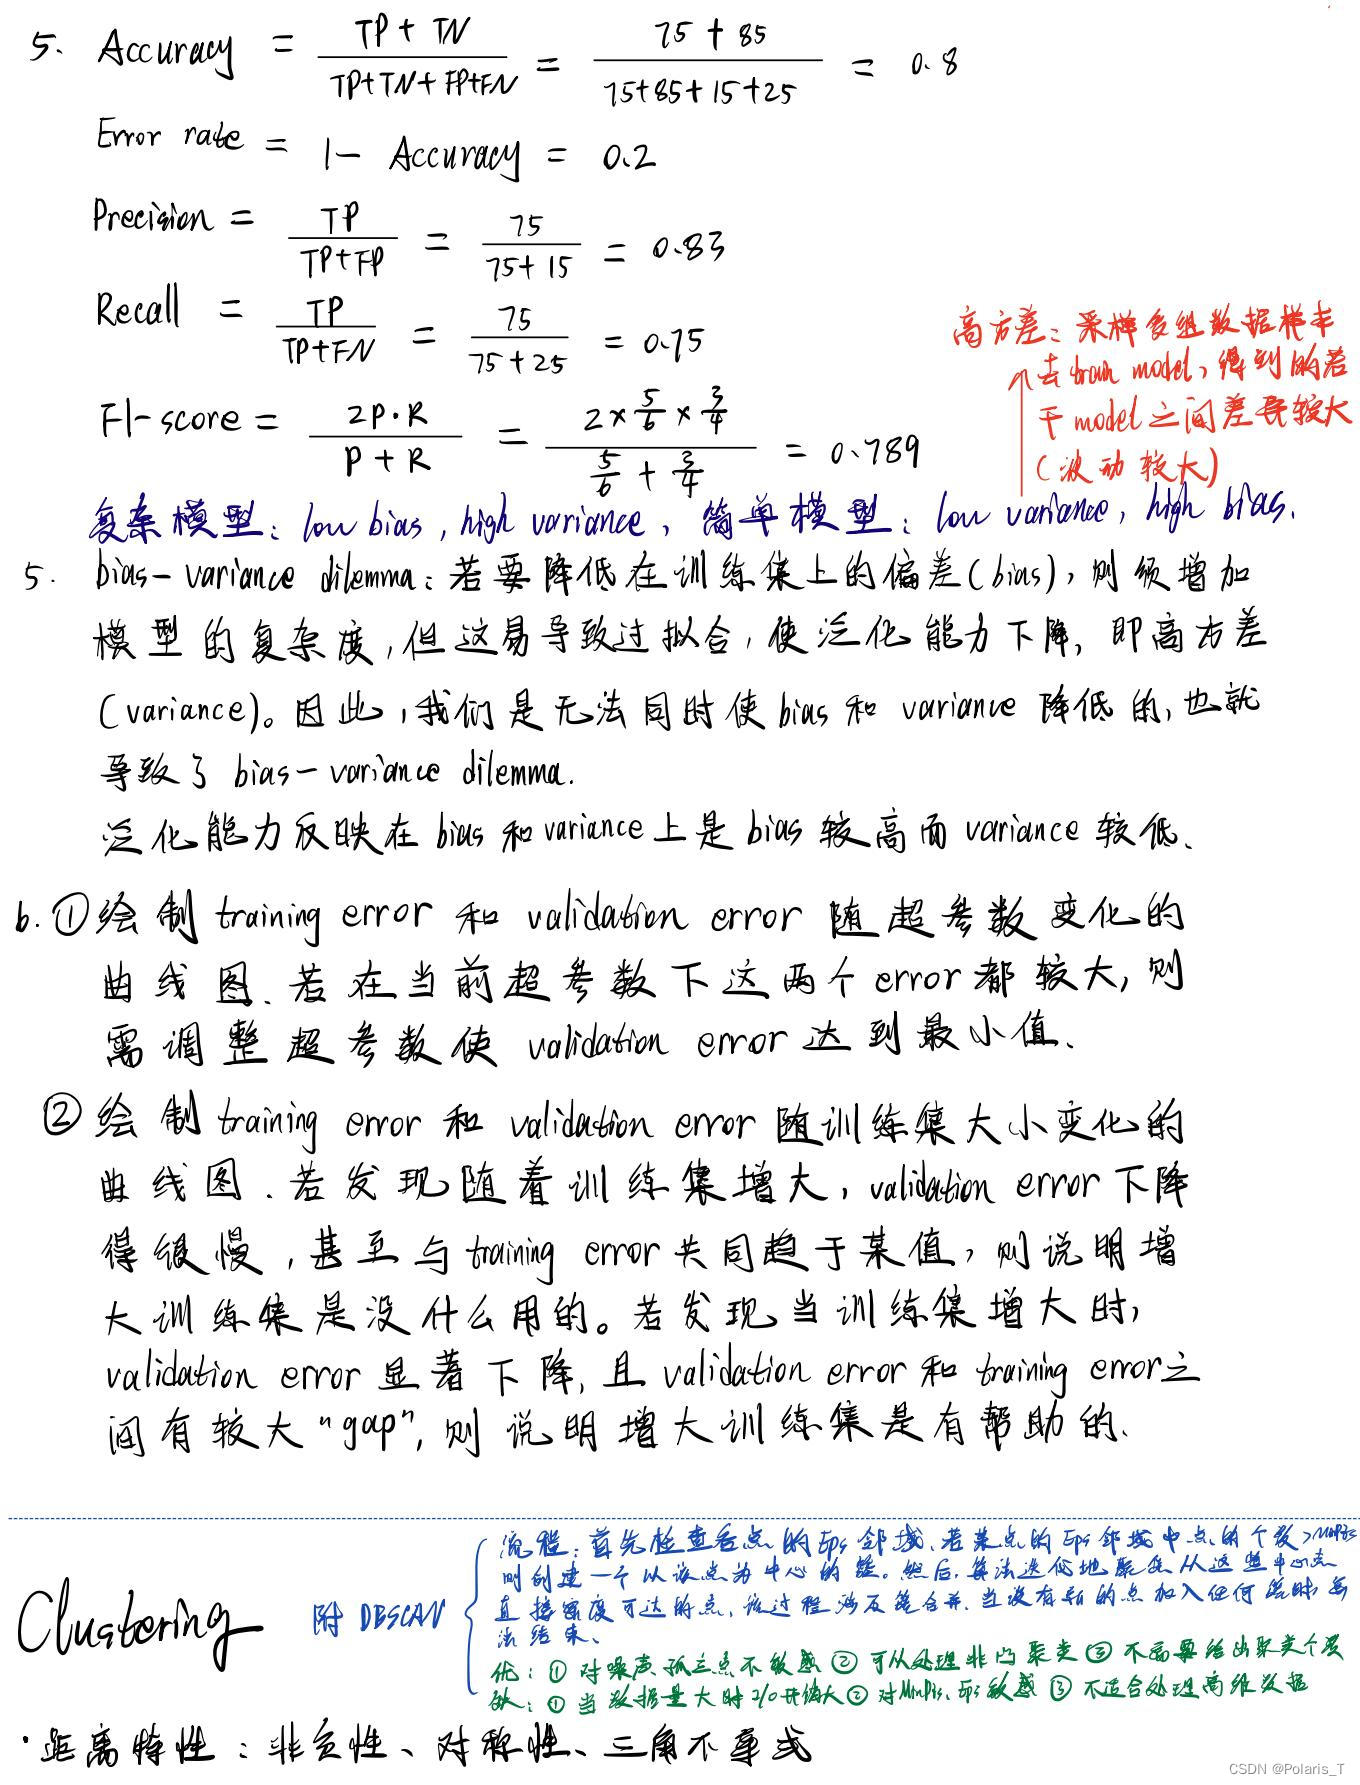 5. Accuracy = TP + TN / TP+TN+FP+FN = 75 + 85 / 75+85+15+25 = 0.8
Error rate = 1 - Accuracy = 0.2
Precision = TP / TP+FP = 75 / 75+15 = 0.83
Recall = TP / TP+FN = 75 / 75+25 = 0.75
F1-score = 2P·R / P + R = 2 × 5/6 × 3/4 / 5/6 + 3/4 = 0.789
高方差：采样多组数据样本
去train model，得到的若
干model之间差异较大
（波动较大）
复杂模型：low bias, high variance，简单模型：low variance, high bias.
5. bias-variance dilemma：若要降低在训练集上的偏差(bias)，则须增加
模型的复杂度，但这易导致过拟合，使泛化能力下降，即高方差
(variance)。因此，我们是无法同时使bias和variance降低的，也就
导致了bias-variance dilemma.
泛化能力反映在bias和variance上是bias较高而variance较低.
6. ①绘制training error和validation error随超参数变化的
曲线图.若在当前超参数下这两个error都较大，则
需调整超参数使validation error达到最小值.
②绘制training error和validation error随训练集大小变化的
曲线图.若发现随着训练集增大，validation error下降
得很慢，甚至与training error共同趋于某值，则说明增
大训练集是没什么用的。若发现当训练集增大时，
validation error显著下降，且validation error和training error之
间有较大"gap"，则说明增大训练集是有帮助的.
Clustering
附 DBSCAN
流程：首先检查各点的Eps邻域，若某点的Eps邻域中点的个数>MinPts
则创建一个以该点为中心的簇。然后，算法迭代地聚集从这些中心点
直接密度可达的点，该过程涉及簇合并.当没有新的点加入任何簇时，算
法结束.
优：①对噪声、孤立点不敏感②可以处理非凸聚类③不需要给出聚类个数
缺：①当数据量大时I/O开销大②对MinPts、Eps敏感③不适合处理高维数据
·距离特性：非负性、对称性、三角不等式
CSDN @Polaris_T